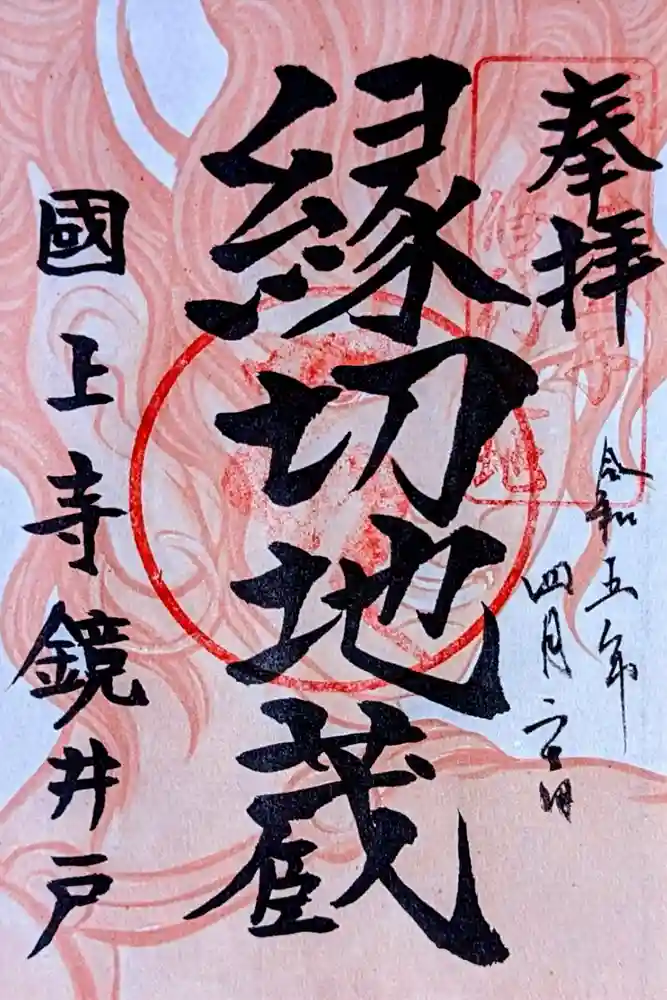 奉拝
令和五年
四月六日
縁切地蔵
國上寺鏡井戸